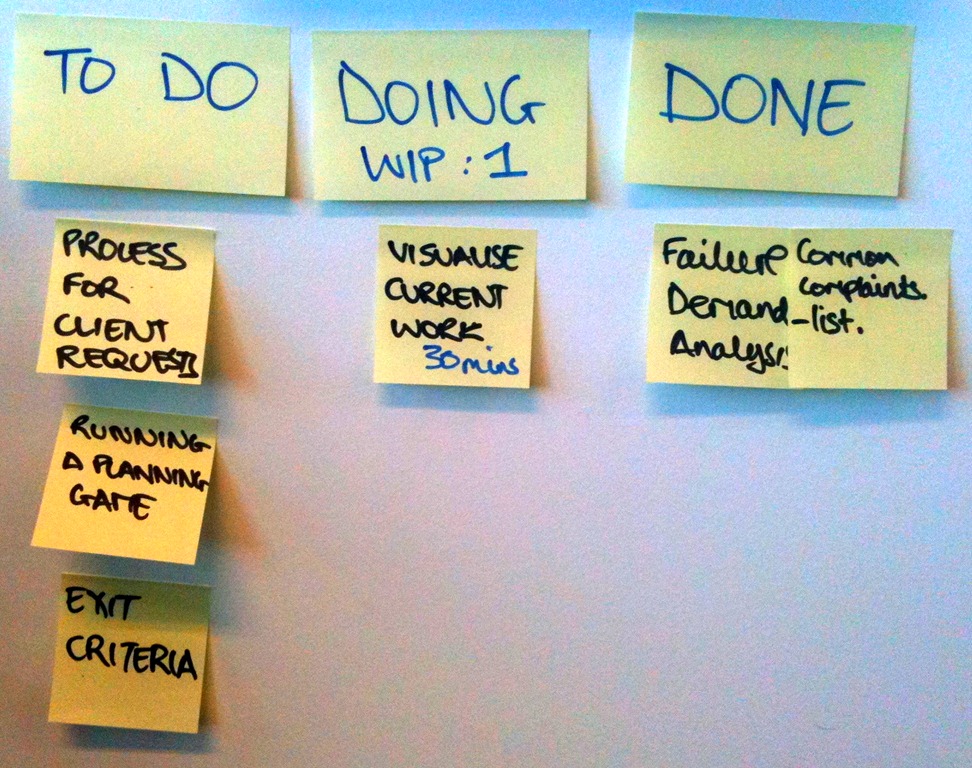 TO DO
PROCESS
FOR
CLIENT
REQUESTS
RUNNING
A PLANNING
GAME
EXIT
CRITERIA
DOING
WIP : 1
VISUALISE
CURRENT
WORK
30mins
DONE
Failure
Demand
Analysis
Common
complaints.
-list.